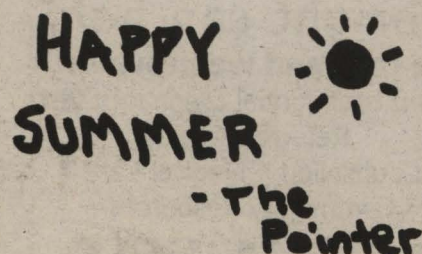 HAPPY
SUMMER
- The
Pointer